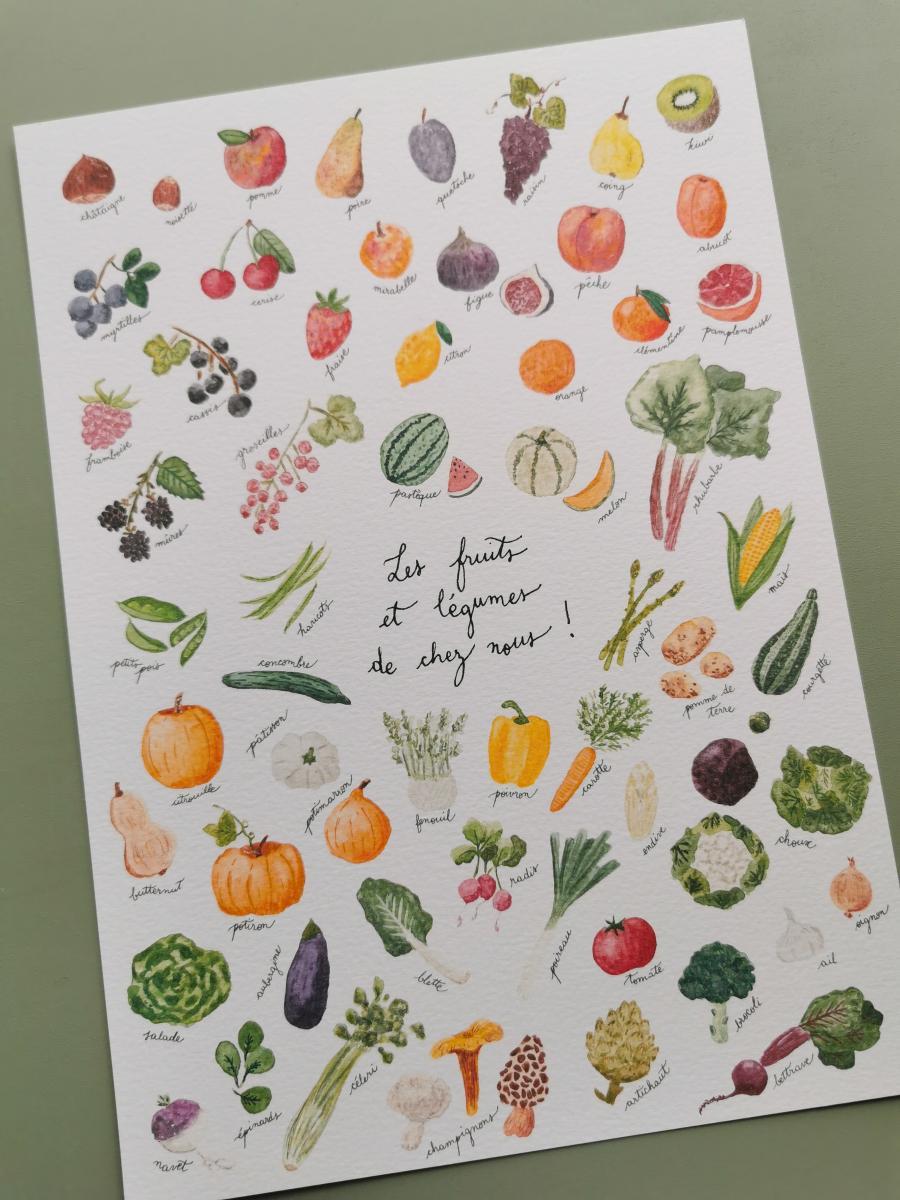 châtaigne
noisette
pomme
poire
quetsche
raisin
coing
kiwi
myrtilles
cerise
mirabelle
figue
pêche
abricot
fraise
citron
clémentine
pamplemousse
framboise
cassis
groseilles
orange
pastèque
melon
rhubarbe
mûres
Les fruits
et légumes
de chez nous !
petits pois
haricots
concombre
asperge
pomme de
terre
maïs
courgette
citrouille
pâtisson
potimarron
fenouil
poivron
carotte
endive
choux
butternut
potiron
radis
poireau
tomate
ail
oignon
salade
aubergine
blette
brocoli
navet
épinards
céleri
champignons
artichaut
bettrave